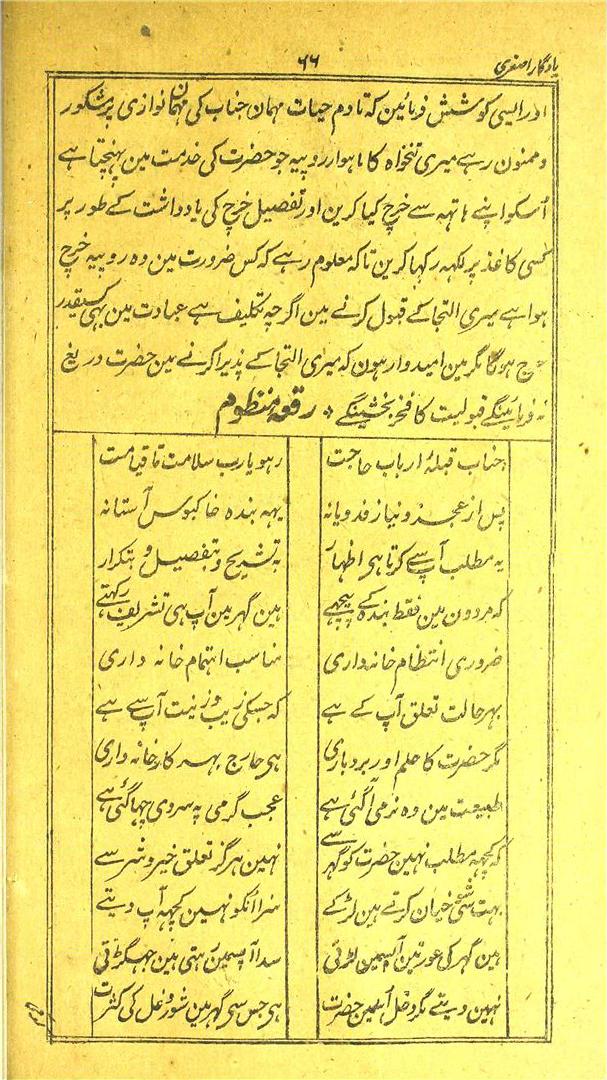 یادگار اصغری
۶۶
اور ایسی کوشش فرمائین کہ تادم حیات مہمان جناب کی مہمان نوازی پر شکور
و ممنون رہے میری تنخواہ کا ماہوار روپیہ جو حضرت کی خدمت مین پہنچتا ہے
اُسکو اپنے ہاتہہ سے خرچ کیا کرین اور تفصیل خرچ کی یادداشت کے طور پر
کسی کاغذ پر لکہہ رکہا کرین تاکہ معلوم رہے کہ کس ضرورت مین وہ روپیہ خرچ
ہوا ہے میری التجا کے قبول کرنے مین اگرچہ تکلیف ہے عبادت مین بہی کسیقدر
حرج ہوگا مگر مین امیدوار ہون کہ میری التجا کے پذیرا کرنے مین حضرت دریغ
نہ فرمائینگے قبولیت کا فخر بخشینگے * رقعہ منظوم
جناب قبلہ ارباب حاجت رہو یارب سلامت تا قیامت
پس از عجز و نیاز فدویانہ یہہ بندہ خاکبوس آستانہ
یہ مطلب آپ سے کرتا ہی اظہار بہ تشریح و بتفصیل و بتکرار
کہ مردون مین فقط بندہ کے پیچہے ہین گہر مین آپ ہی تشریف رکہتے
ضروری انتظام خانہ داری مناسب اہتمام خانہ داری
بہرحالت تعلق آپ کے ہے کہ جسکی زیب و زینت آپ سے ہے
مگر حضرت کا حلم اور بردباری ہی حارج بہر کار خانہ داری
طبیعت مین وہ نرمی آگئی ہے عجب گرمی پہ سردی چہا گئی ہے
کہ کچہہ مطلب نہین حضرت کو گہر سے نہین ہرگز تعلق خیر و شر سے
بہت شوخیان کرتے ہین لڑکے سزا انکو نہین کچہہ آپ دیتے
ہین گہر کی عورتین آپسمین لڑتی سدا آپسمین رہتی ہین جہگڑتی
نہین دیتے مگر دخل اسمین حضرت ہی جس سی گہر مین شور و غل کی کثرت